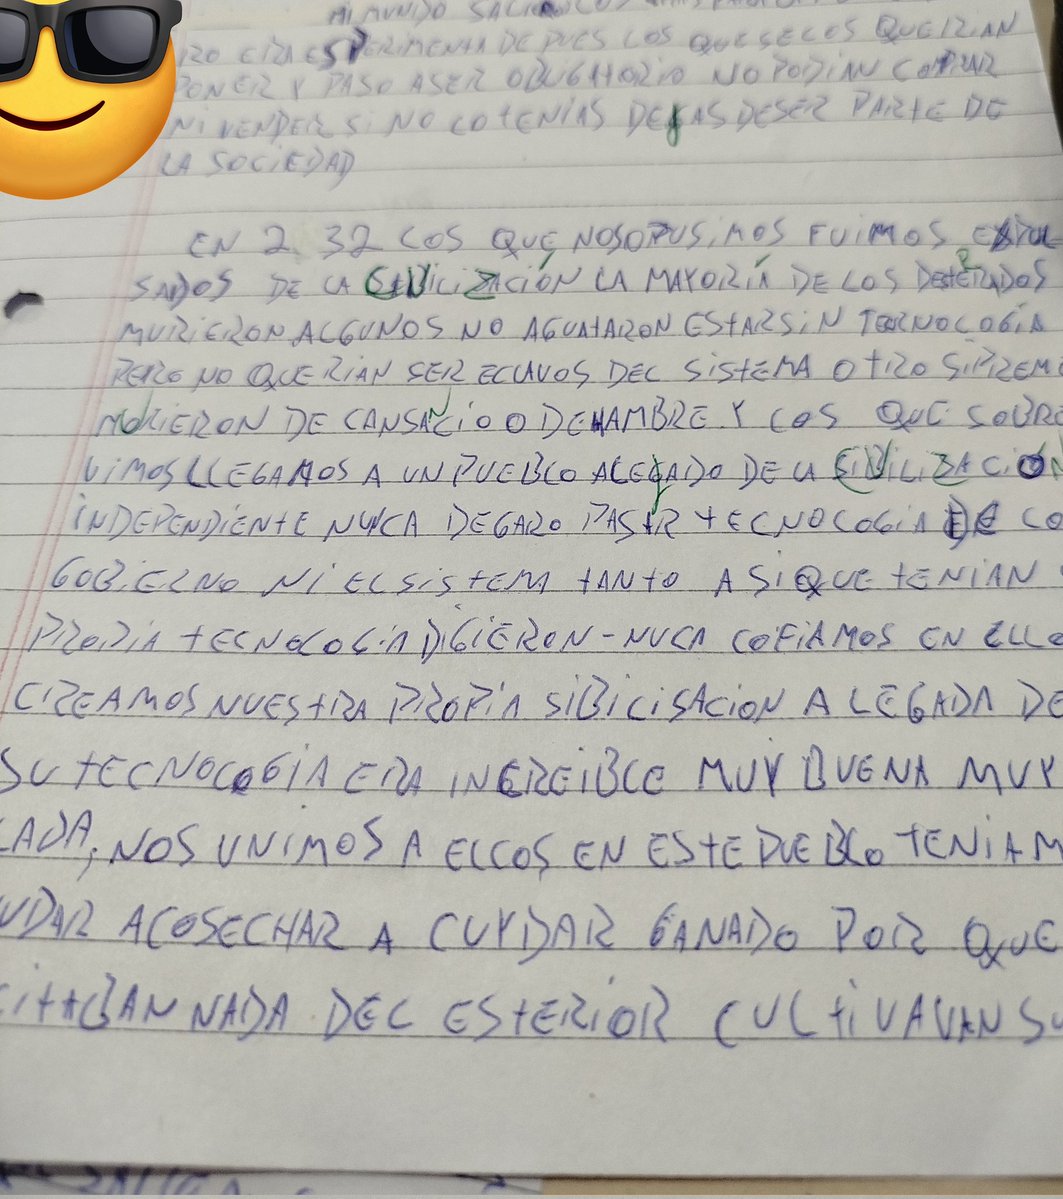 MI MUNDO
ERA ESPERIMENTA DEPUES LOS QUESELOS QUERIAN
PONER Y PASO ASER OBLIGATORIO NO PODIAN COMPRAR
NI VENDER SI NO LO TENIAS DEJAS DESER PARTE DE
LA SOCIEDAD
EN 2 32 LOS QUE NOSOPUSIMOS FUIMOS EXPUL
SADOS DE LA CIVILIZACIÓN LA MAYORÍA DE LOS DESTERADOS
MURIERON ALGUNOS NO AGUATARON ESTARSIN TECNOLOGÍA
PERO NO QUERIAN SER ECLAVOS DEL SISTEMA OTRO
MURIERON DE CANSANCIO O DEHAMBRE Y LOS QUE SOBRE
VIMOS LLEGAMOS A UN PUEBLO ALEJADO DE LA CIVILIZACIÓN
INDEPENDIENTE NUNCA DEGARO PASAR TECNOLOGIA DE LO
GOBIERNO NI EL SISTEM TANTO ASI QUE TENIAN
PROPIA TECNOLOGIA DIGIERON - NUCA COFIAMOS EN ELLO
CREAMOS NUESTRA PROPIA SIBILISACION ALEGADA DE
SU TECNOLOGIA ERA INCREIBLE MUY BUENA MUY
LADA, NOS UNIMOS A ELLOS EN ESTE PUEBLO TENIAM
UDAR ACOSECHAR A CUYDAR GANADO POR QUE
CITABAN NADA DEL ESTERIOR CULTIVAVAN SU